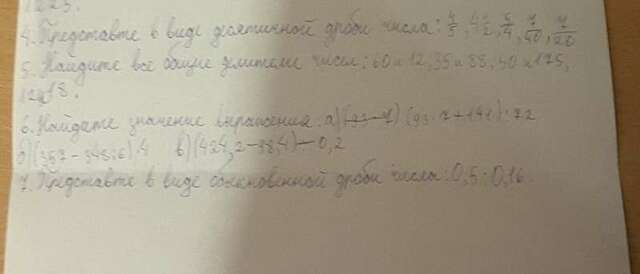 4. Представте в виде десятичной дроби числа: 4/5, 4 1/2, 5/4, 7/40, 7/20
5. Найдите все общие делители чисел: 60 и 12, 35 и 88, 50 и 175,
12 и 18.
6. Найдите значение выражения: а) (93·7+141):72
б) (357-348:6)·4 в) (424,2-38,4)-0,2
7. Представте в виде обыкновенной дроби числа: 0,5; 0,16.